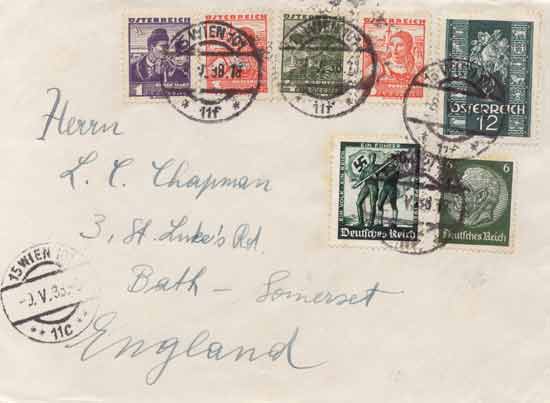 ÖSTERREICH
ÖSTERREICH
ÖSTERREICH
ÖSTERREICH
1
1
ÖSTERREICH
12
15 WIEN 101
11f
11f
EIN FÜHRER
EIN VOLK
EIN REICH
Deutsches Reich
6
Deutsches Reich
Herrn
L. C. Chapman
3, St. Luke's Rd.
Bath - Somerset
England
15 WIEN 101
-9. V. 38.
** 11c **